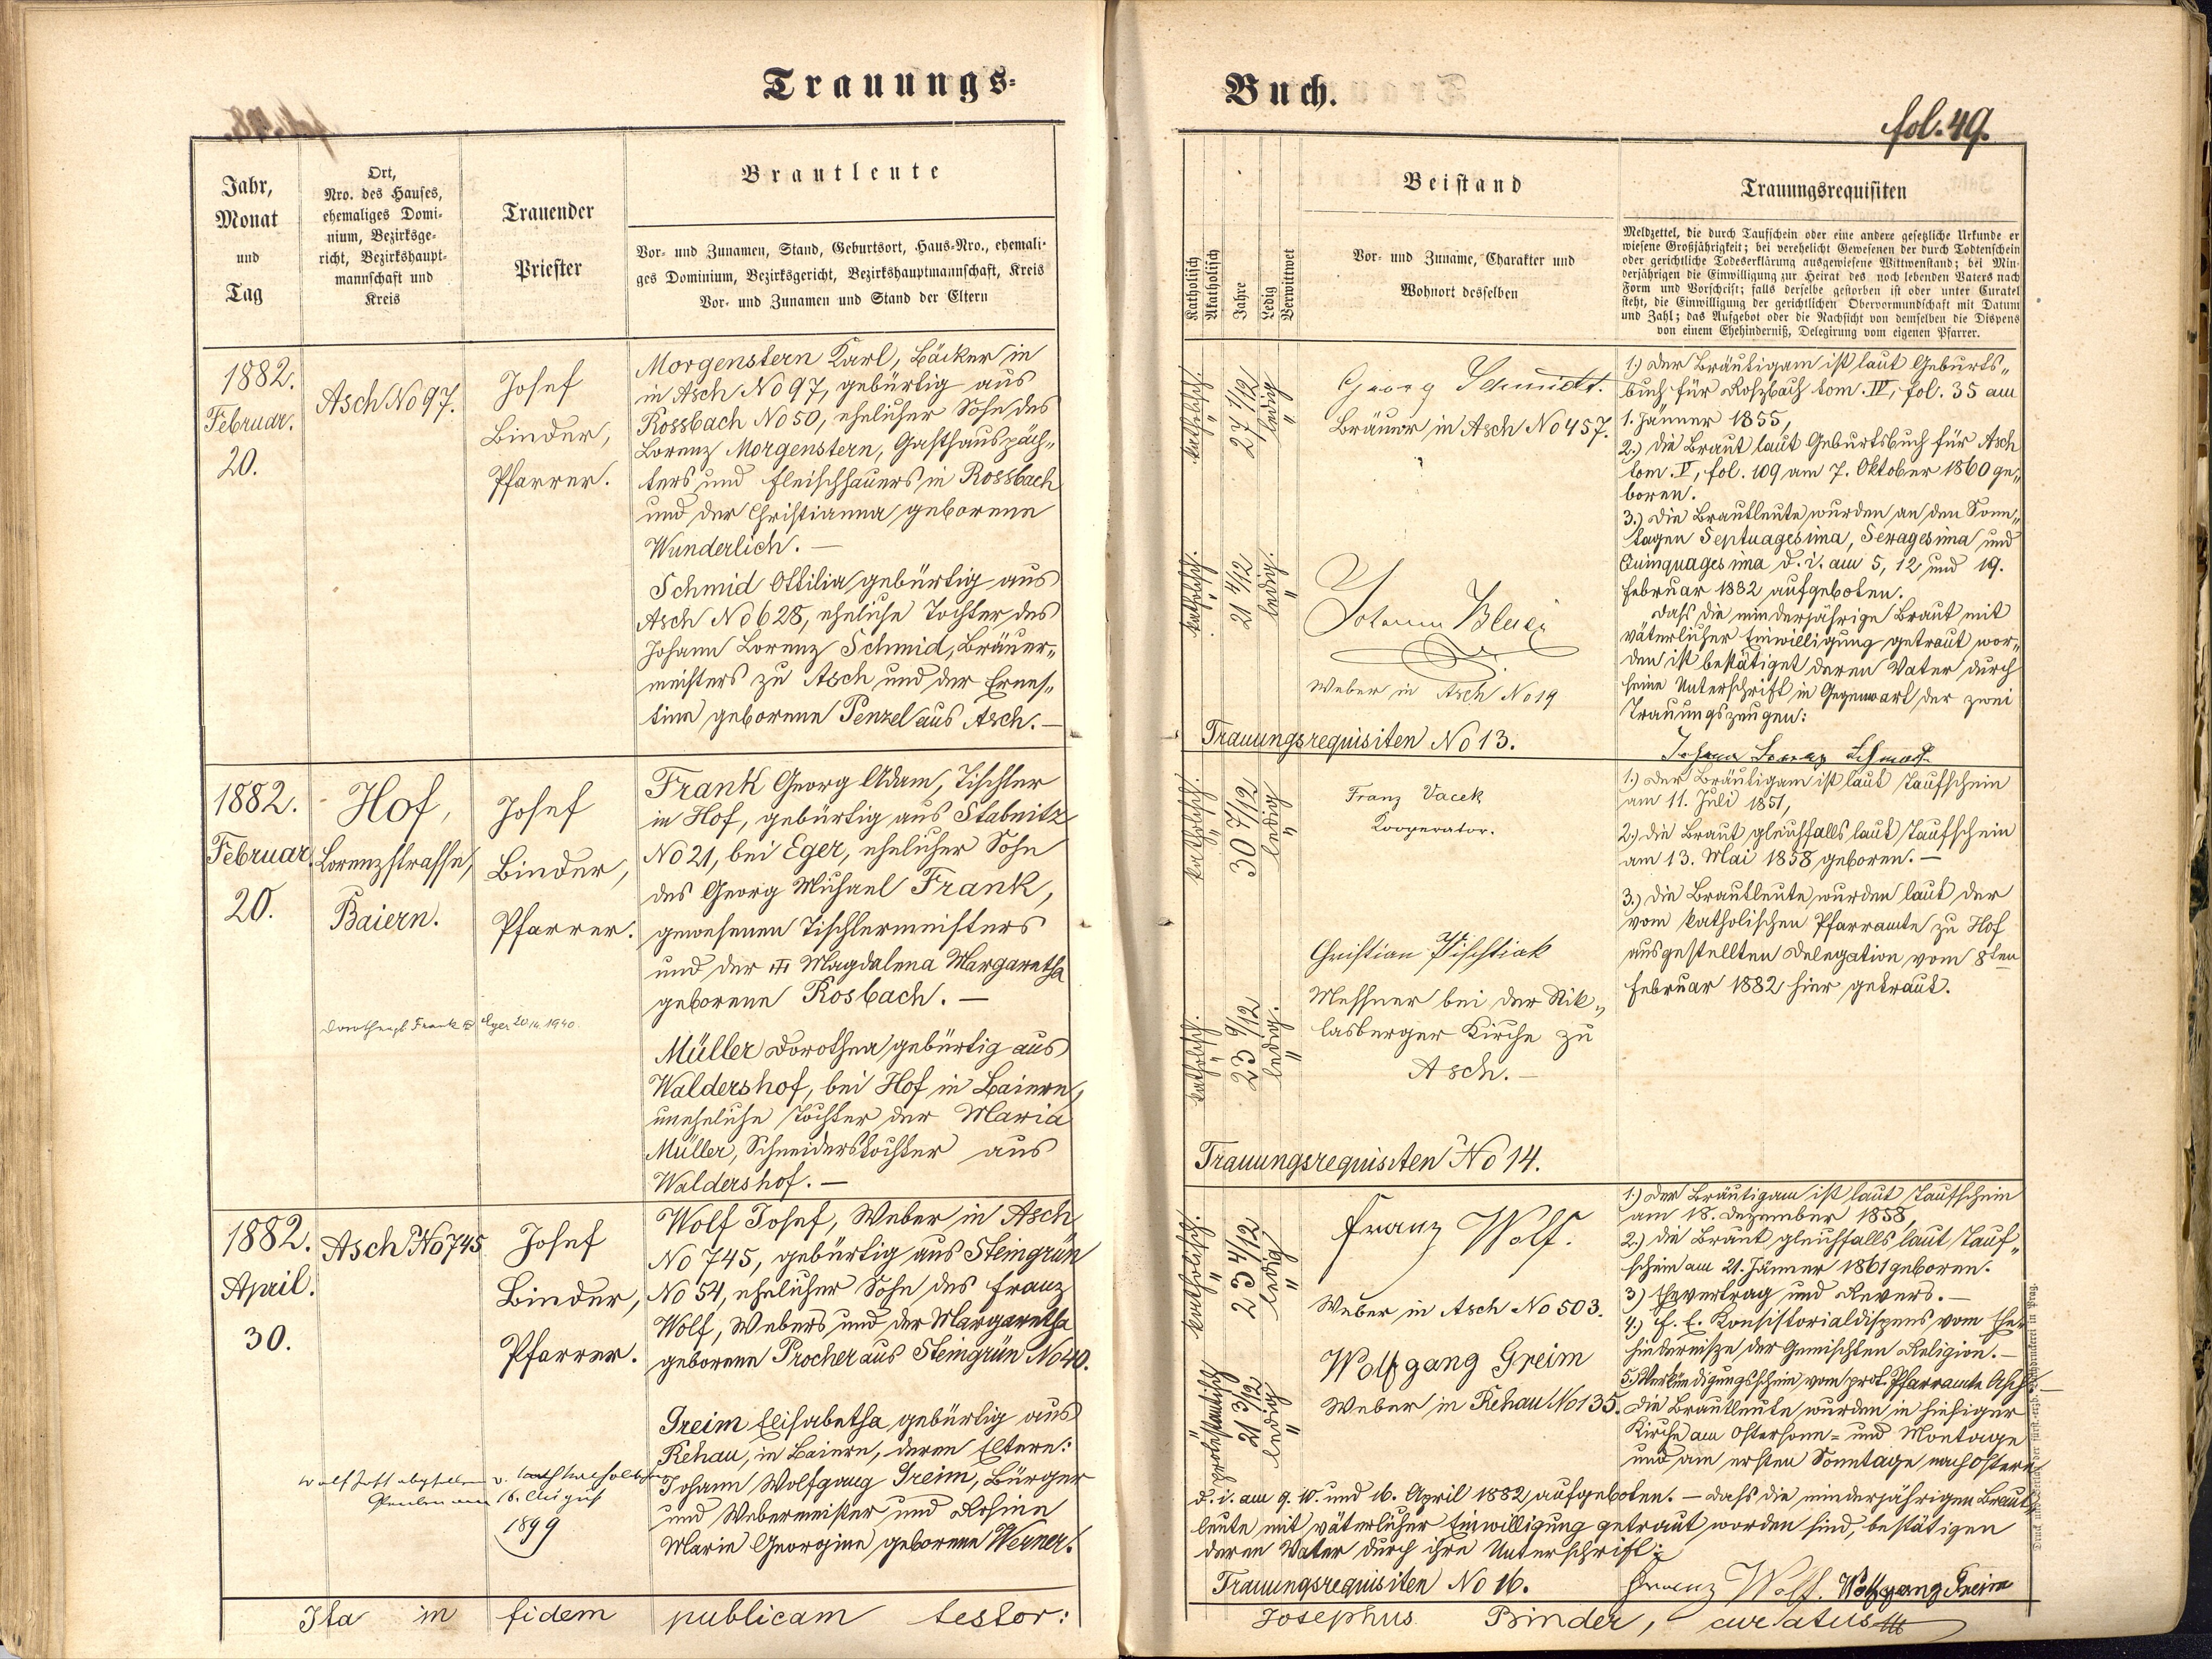 Trauungs-
Jahr,
Monat
und
Tag
Ort,
Nro. des Hauses,
ehemaliges Domi-
nium, Bezirksge-
richt, Bezirkshaupt-
mannschaft und
Kreis
Trauender
Priester
Brautleute
Vor- und Zunamen, Stand, Geburtsort, Haus-Nro., ehemali-
ges Dominium, Bezirksgericht, Bezirkshauptmannschaft, Kreis
Vor- und Zunamen und Stand der Eltern
1882.
Februar.
20.
Asch No 97.
Josef
Binder,
Pfarrer.
Morgenstern Karl, Bäcker in
in Asch No 97, gebürtig aus
Rossbach No 50, ehelicher Sohn des
Lorenz Morgenstern, Gasthauspäch-
ters und Fleischhauers in Rossbach
und der Christianna geborene
Wunderlich. —
Schmid Ottilia gebürtig aus
Asch No 628, eheliche Tochter des
Johann Lorenz Schmid, Bräuer-
meisters zu Asch und der Ernes-
tine geborene Penzel aus Asch. —
1882.
Februar.
20.
Hof,
Lorenzstrasse,
Baiern.
Josef
Binder,
Pfarrer.
Frank Georg Adam, Tischler
in Hof, gebürtig aus Stabnitz
No 21, bei Eger, ehelicher Sohn
des Georg Michael Frank,
gewesenen Tischlermeisters
und der Magdalena Margaretha
geborene Rosbach. —
Frank Eger 1940
Müller Dorothea gebürtig aus
Waldershof, bei Hof in Baiern,
uneheliche Tochter der Maria
Müller, Schneiderstochter aus
Waldershof. —
1882.
April.
30.
Asch No 745
Josef
Binder,
Pfarrer.
Wolf Josef, Weber in Asch
No 745, gebürtig aus Steingrün
No 54, ehelicher Sohn des Franz
Wolf, Webers und der Margaretha
geborene Procher aus Steingrün No 40.
Greim Elisabetha gebürtig aus
Rehau, in Baiern, deren Eltern:
Johann Wolfgang Greim, Bürger
und Webermeister und Rosine
Marie Georgine geborene Werner.
16. August
1899
Ita in fidem publicam testor:
Buch.
fol. 49.
Katholisch
Akatholisch
Jahre
Ledig
Verwittwet
Beistand
Vor- und Zuname, Charakter und
Wohnort desselben
Trauungsrequisiten
Meldzettel, die durch Taufschein oder eine andere gesetzliche Urkunde er
wiesene Großjährigkeit; bei verehelicht Gewesenen der durch Todtenschein
oder gerichtliche Todeserklärung ausgewiesene Wittwenstand; bei Min-
derjährigen die Einwilligung zur Heirat des noch lebenden Vaters nach
Form und Vorschrift; falls derselbe gestorben ist oder unter Curatel
steht, die Einwilligung der gerichtlichen Obervormundschaft mit Datum
und Zahl; das Aufgebot oder die Nachsicht von demselben die Dispens
von einem Ehehinderniß, Delegirung vom eigenen Pfarrer.
katholisch.
27 1/12
ledig
Georg Schmidt.
Bräuer in Asch No 457.
katholisch.
21 4/12
ledig.
Johann
Weber in Asch No 19
Trauungsrequisiten No 13.
1.) Der Bräutigam ist laut Geburts-
buch für Roßbach tom. IV, fol. 35 am
1. Jänner 1855,
2.) die Braut laut Geburtsbuch für Asch
tom. V, fol. 109 am 7. Oktober 1860 ge-
boren.
3.) Die Brautleute wurden an den Sonn-
tagen Septuagesima, Sexagesima und
Quinquagesima d. i. am 5, 12 und 19.
Februar 1882 aufgeboten.
Daß die minderjährige Braut mit
väterlicher Einwilligung getraut wor-
den ist bestätiget deren Vater durch
seine Unterschrift in Gegenwart der zwei
Trauungszeugen:
Johann Lorenz Schmid
katholisch.
30 7/12
ledig
Franz Vacek
Kooperator.
katholisch.
23 9/12
ledig.
Christian
Messner bei der Nik-
lasberger Kirche zu
Asch. —
Trauungsrequisiten No 14.
1.) Der Bräutigam ist laut Taufschein
am 11. Juli 1851,
2.) die Braut gleichfalls laut Taufschein
am 13. Mai 1858 geboren. —
3.) Die Brautleute wurden laut der
vom katholischen Pfarramte zu Hof
ausgestellten Delegation vom 8ten
Februar 1882 hier getraut.
katholisch.
23 4/12
ledig
Franz Wolf.
Weber in Asch No 503.
protestantisch
21 3/12
ledig
Wolfgang Greim
Weber in Rehau No 135.
1.) Der Bräutigam ist laut Taufschein
am 18. Dezember 1858,
2.) die Braut gleichfalls laut Tauf-
schein am 21. Jänner 1861 geboren.
3) Ehevertrag und Revers. —
4.) f. e. Konsistorialdispens vom Ehe-
hindernisse der gemischten Religion. —
5. Verkündigungsschein vom prot. Pfarramte Asch. —
Die Brautleute wurden in hiesiger
Kirche am Ostersonn- und Montage
und am ersten Sonntage nach Ostern
d. i. am 9. 10. und 16. April 1882 aufgeboten. — Daß die minderjährigen Braut-
leute mit väterlicher Einwilligung getraut worden sind, bestätigen
deren Väter durch ihre Unterschrift:
Trauungsrequisiten No 16.
Franz Wolf. Wolfgang Greim
Josephus Binder, curatus